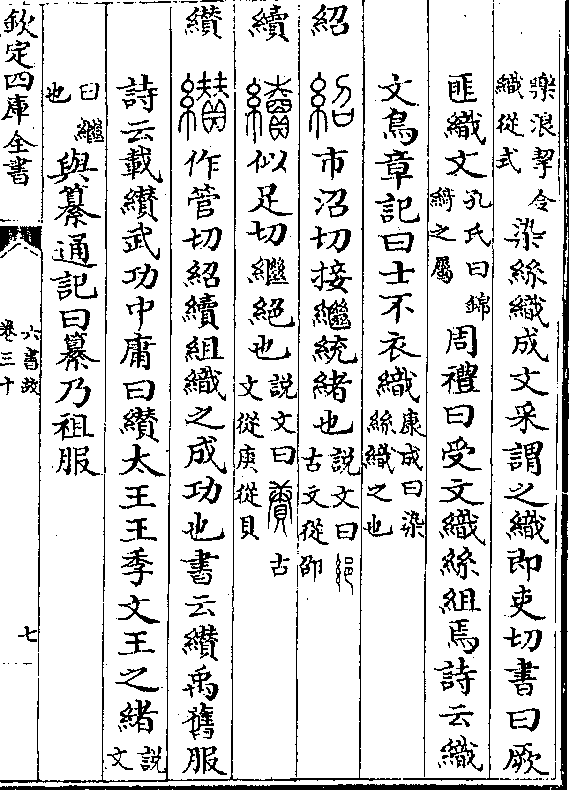 樂浪挈令織從式染絲織成文采謂之織即吏切書曰厥
匪織文孔氏曰錦綺之屬周禮曰受文織絲組焉詩云織
文鳥章記曰士不衣織康成曰染絲織之也
紹 紹市沼切接繼統緒也説文曰古文從卲
續 續似足切繼絕也説文曰賡古文從庚從貝
纘 纘作管切紹續組織之成功也書云纘禹舊服
詩云載纘武功中庸曰纘太王王季文王之緒説文
曰繼也與纂通記曰纂乃祖服
欽定四庫全書
六書故
卷三十
七